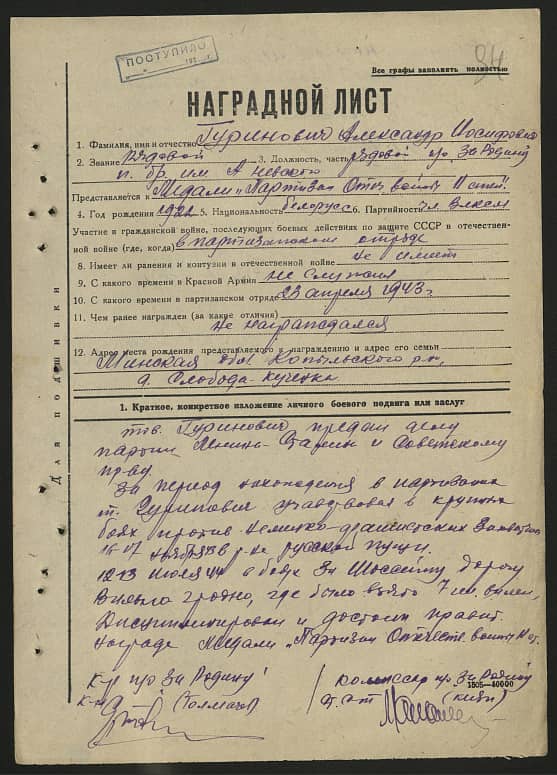 ПОСТУПИЛО
84
Все графы заполнить полностью
НАГРАДНОЙ ЛИСТ
1. Фамилия, имя и отчество Гуринович Александр Иосифович
2. Звание Рядовой 3. Должность, часть рядовой п/о За Родину
п. бр. им А Невского
Представляется к Медали „Партизан Отеч. войны II степ.
4. Год рождения 1922 5. Национальность белорусс 6. Партийность чл. Влксм
Участие в гражданской войне, последующих боевых действиях по защите СССР в отечествен-
ной войне (где, когда) в партизанском отряде
8. Имеет ли ранения и контузии в отечественной войне не имеет
9. С какого времени в Красной Армии не служил
10. С какого времени в партизанском отряде 23 апреля 1943 г.
11. Чем ранее награжден (за какие отличия)
не награждался
12. Адрес места рождения представляемого к награждению и адрес его семьи
Минская обл Копыльского р-н,
д. Слобода-Кучинка
Для подшивки
1. Краткое, конкретное изложение личного боевого подвига или заслуг
тов. Гуринович предан делу
партии Ленина-Сталина и Советскому
пр-ву.
За период нахождения в партизанах
т. Гуринович участвовал в крупных
боях против немецко-фашистских
в р-не русской пущи.
12-13 июля 44 в боях за Шоссейную дорогу
Вильно Гродно, где было взято 7 пл.
Дисциплинирован и достоин правит.
награде Медали „Партизан Отечеств. войны II ст.
к-р п/о За Родину комиссар п/о За Родину
к-на (Толмачев) ст. л-т
1505—40000